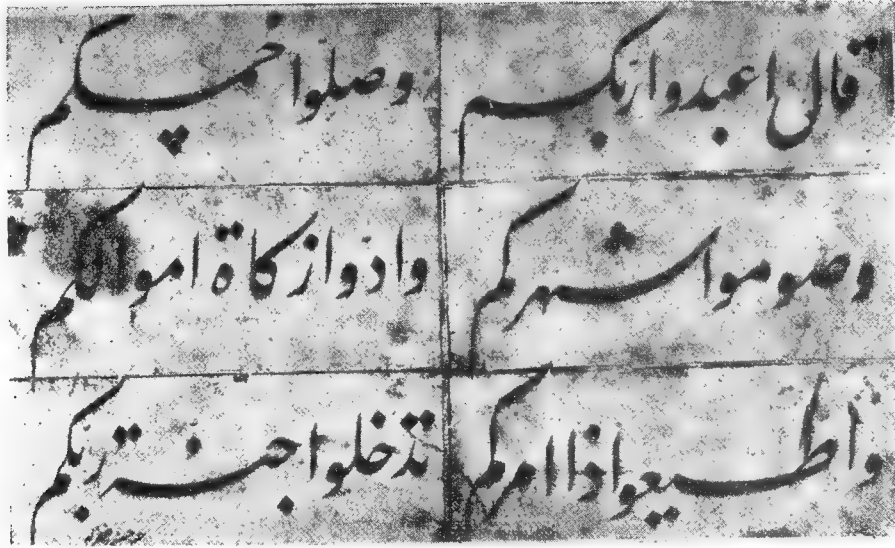 قال اعبدوا ربكم
وصلوا خمسكم
وصوموا شهركم
وادوا زكاة اموالكم
واطيعوا ذا امركم
تدخلوا جنة ربكم